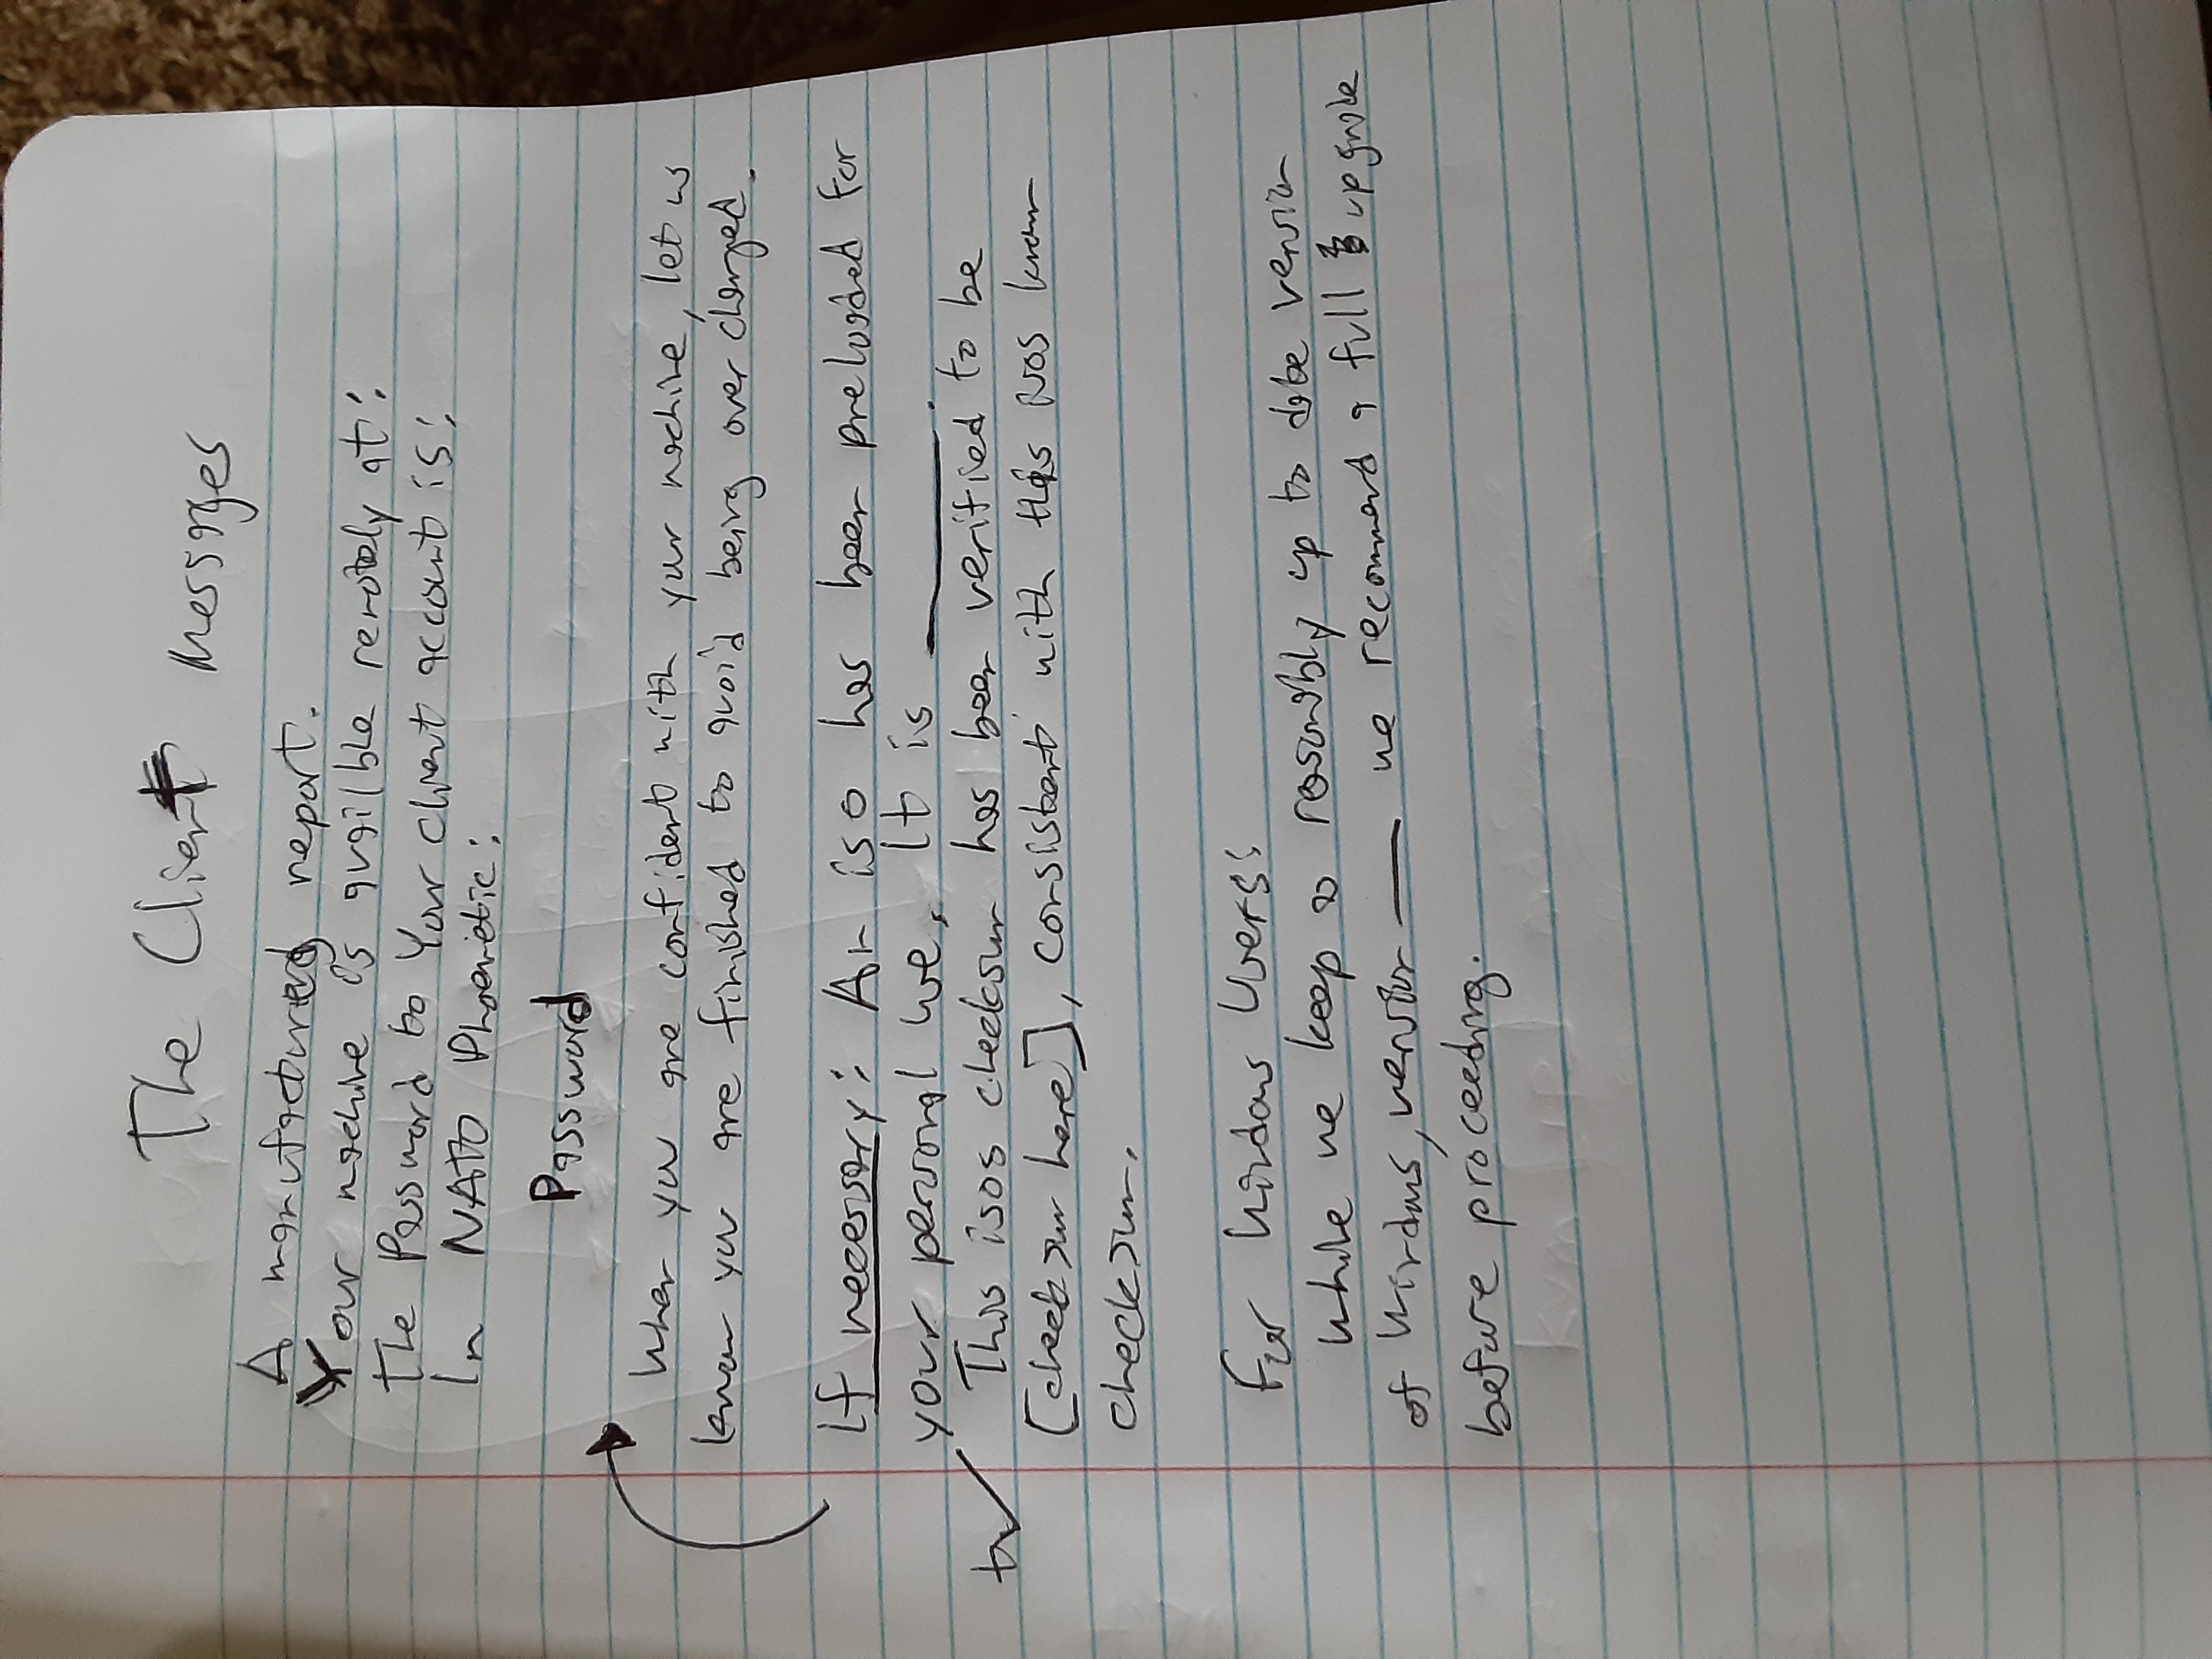 The Client Messages
A manufacturers report.
Your machine is availble remotely at:
The Password to Your client account is:
In NATO Phoenetic:
Password
When you are confident with your machine, let us
know you are finished to avoid being over charged.
If necessary: An iso has been preloaded for
your personal use. It is ______.
This isos checksum has been verified to be
[checksum here], consistent with this isos known
checksum.
For Windows Users:
While we keep a reasonably up to date version
of Windows, version ___ we recommend a full upgrade
before proceeding.